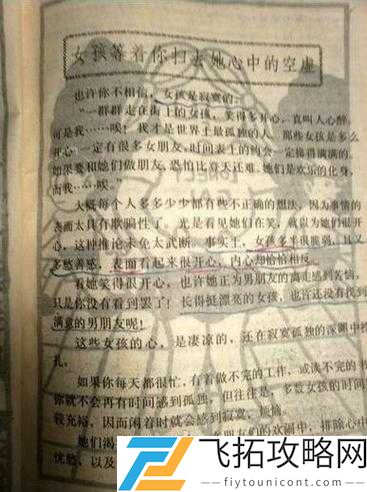 女孩等着你扫去她心中的空虚
也许你不相信，女孩是寂寞的。
“一群群走在街上的女孩，笑得多开心，真叫人心醉，
可是我……唉！我才是世界上最孤独的人。那些女孩是多么
开心，一定有很多女朋友，时间表上的约会一定排得满满的。
如果要和她们做朋友，恐怕比登天还难。她们是欢乐的化身，
而我……唉！”
大概每个人多多少少都有些不正确的想法，因为事情的
表面太具有欺骗性了。光是看见她们在笑，就以为她们很开
心，这种推论未免太武断。事实上，女孩多半很脆弱，且又
多愁善感，表面看起来很开心，内心却恰恰相反。
看她笑得很开心，也许她正为男朋友的离走感到苦恼，
只是你没有看到罢了！长得挺漂亮的女孩，也许还没有找到
满意的男朋友呢！
这些女孩的心，是凄凉的，还在寂寞孤独的深渊中挣
扎。
如果你每天都很忙，有着做不完的工作，或读不完的书
你就不会再有时间感到孤独，但往往是，多数女孩的时间
较充裕，因而闲着时就会感到寂寞、烦恼。
她们渴
友们的欢闹中，排除心中
忧愁，以及
飞拓攻略网
flytounicont.com